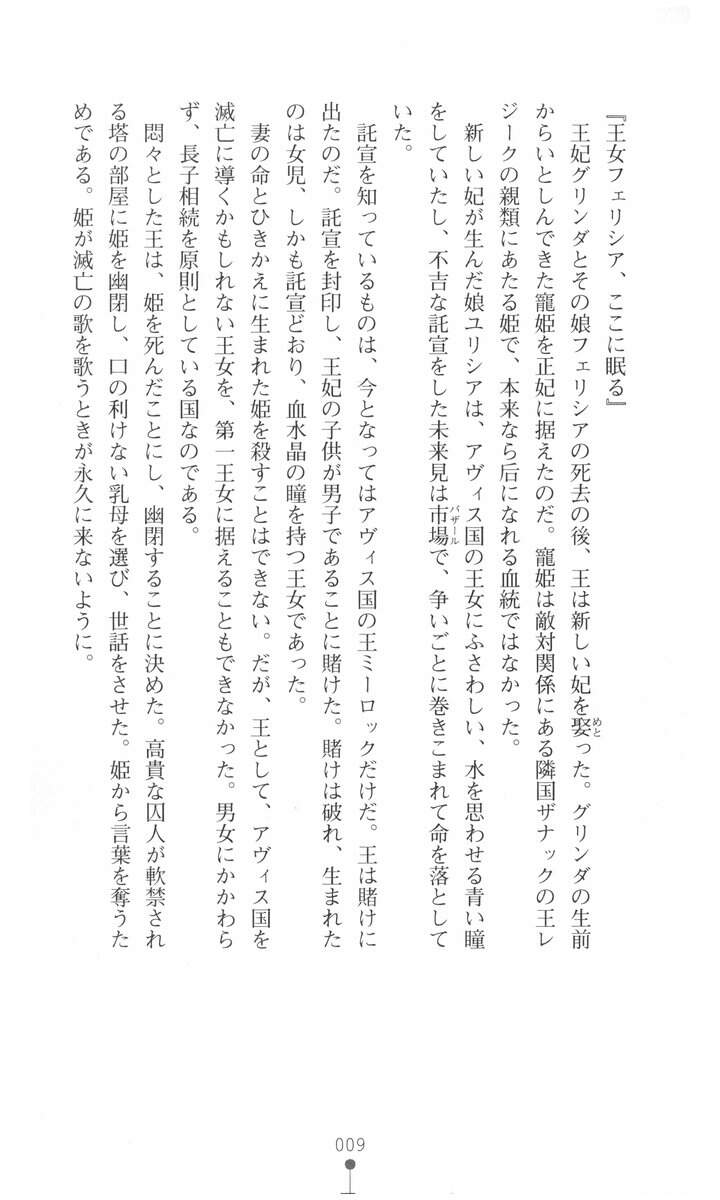 『王女フェリシア、ここに眠る』
王妃グリンダとその娘フェリシアの死去の後、王は新しい妃を娶った。グリンダの生前
めと
からいとしんできた寵姫を正妃に据えたのだ。寵姫は敵対関係にある隣国ザナックの王レ
ジークの親類にあたる姫で、本来なら后になれる血統ではなかった。
新しい妃が生んだ娘ユリシアは、アヴィス国の王女にふさわしい、水を思わせる青い瞳
をしていたし、不吉な託宣をした未来見は市場で、争いごとに巻きこまれて命を落として
バザール
いた。
託宣を知っているものは、今となってはアヴィス国の王ミーロックだけだ。王は賭けに
出たのだ。託宣を封印し、王妃の子供が男子であることに賭けた。賭けは破れ、生まれた
のは女児、しかも託宣どおり、血水晶の瞳を持つ王女であった。
妻の命とひきかえに生まれた姫を殺すことはできない。だが、王として、アヴィス国を
滅亡に導くかもしれない王女を、第一王女に据えることもできなかった。男女にかかわら
ず、長子相続を原則としている国なのである。
悶々とした王は、姫を死んだことにし、幽閉することに決めた。高貴な囚人が軟禁され
る塔の部屋に姫を幽閉し、口の利けない乳母を選び、世話をさせた。姫から言葉を奪うた
めである。姫が滅亡の歌を歌うときが永久に来ないように。
009